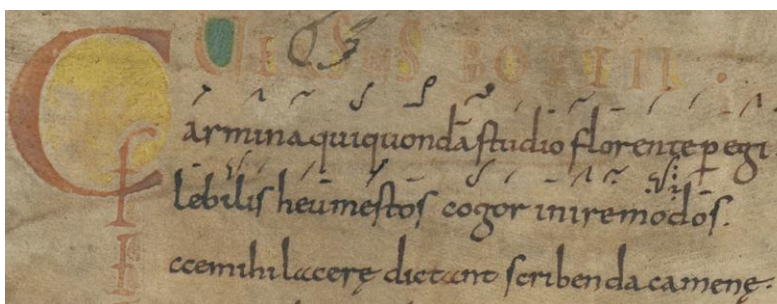 UERSUS BOETII .
Carmina qui quondã studio florente ꝑegi
Flebilis heu mestos cogor inire modos.
Eccemihi lacerę dictant scribenda camenę.